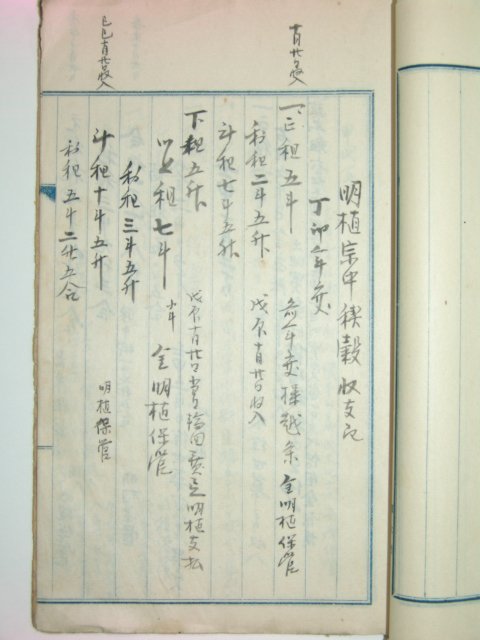 明植宗中稧穀收支記
丁卯年度
十月廿日受入
一、正租五斗 前年度操越条 金明植保管
私租二斗五升 戊辰十月廿日收入
斗租七斗五升
下租五升 戊辰十月廿日 明植支払
以上租七斗 金明植保管
私租三斗五升
斗租十斗五升 明植保管
己巳十月廿日收入
私租五斗二升五合